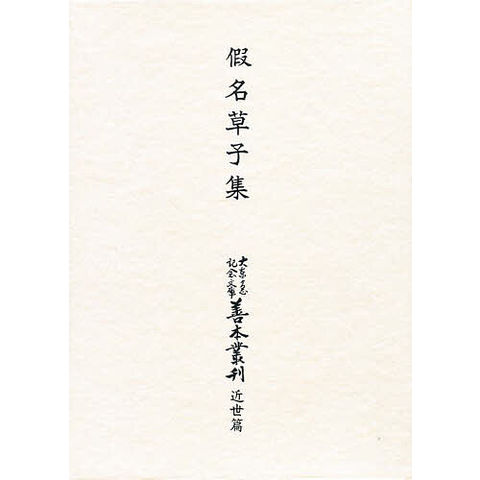 假名草子集
大東急
記念文庫
善本叢刊
近世篇